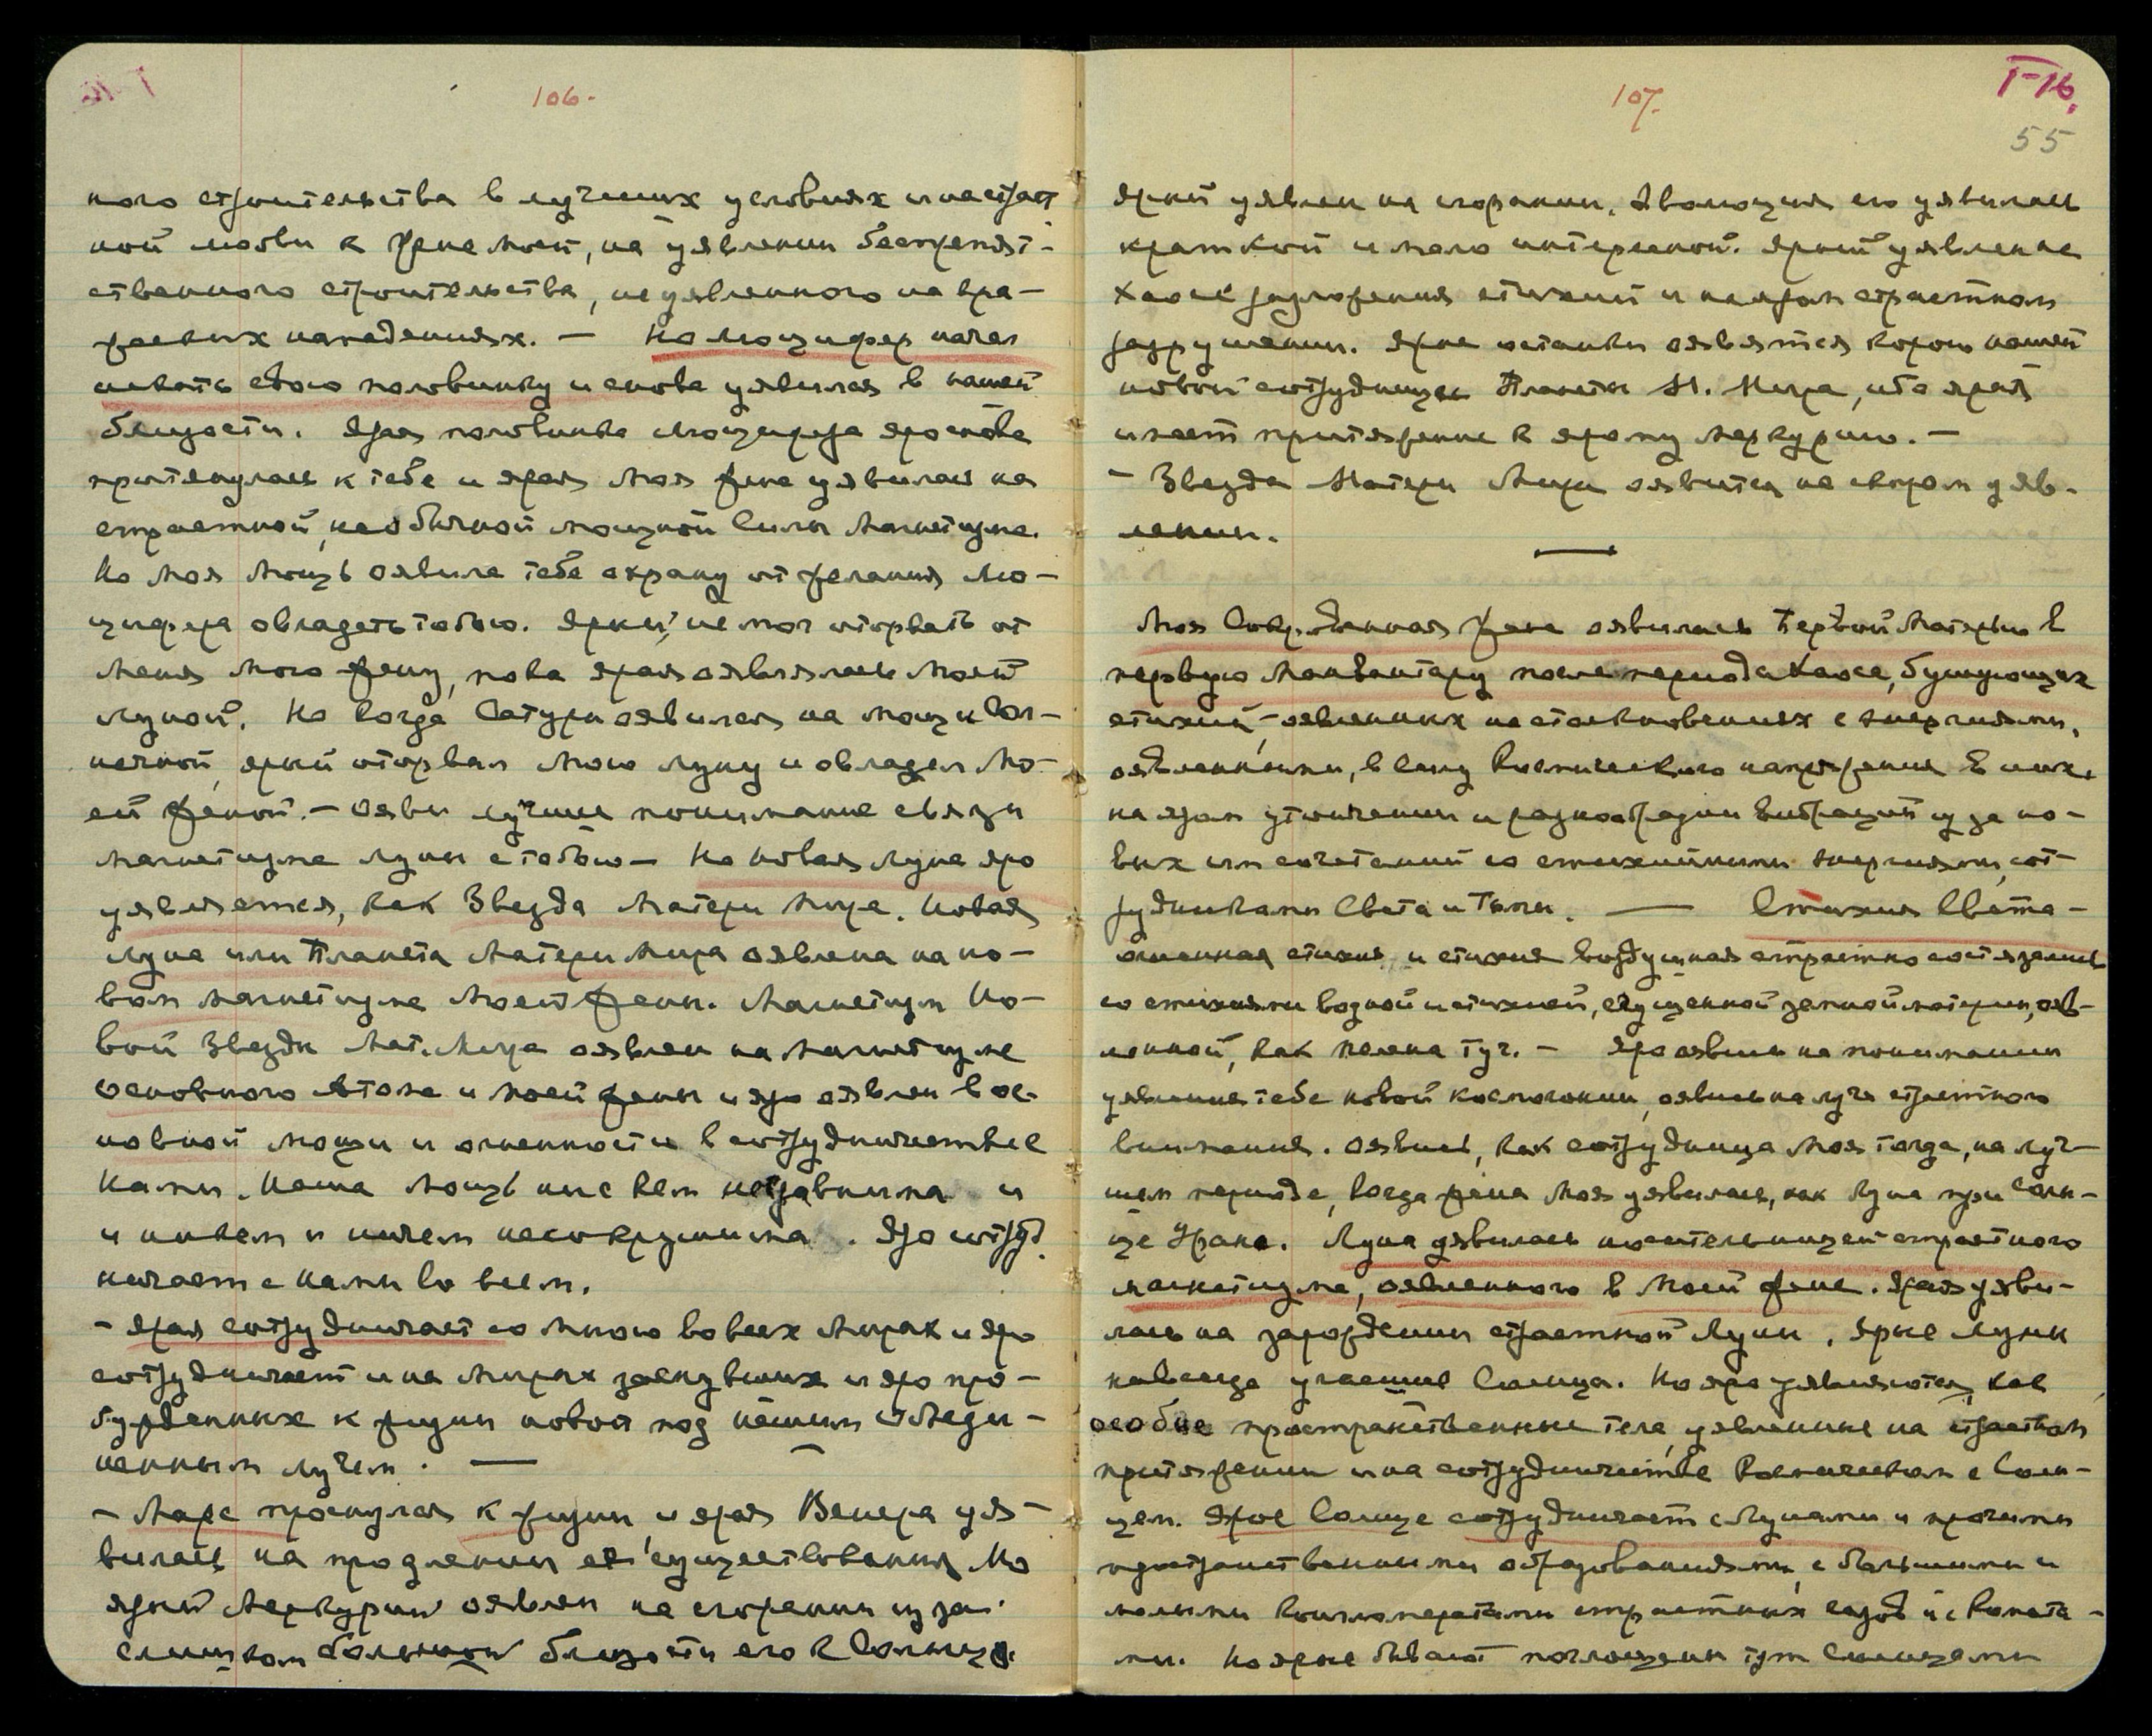 106.
ного строительства в лучших условиях и на страст
ной любви к Жене моей, на уявлении беспрепят-
ственного строительства, не уявленного на вра-
жеских нападениях. — Но Люцифер начал
искать свою половинку и снова уявился в нашей
близости. Ярая половинка Люцифера яро снова
притянулась к тебе и ярая Моя Жена уявилась на
страстной, необычной мощной Силы Магнетизме.
Но Моя Мощь оявила тебе охрану от желания Лю-
цифера овладеть тобою. Ярый не мог оторвать от
Меня Мою Жену, пока ярая оявлялась Моей
Луной. Но когда Сатурн оявился на мощи Сол-
нечной, ярый оторвал Мою Луну и овладел Мо-
ей Женой. — Ояви лучшее понимание связи
магнетизма луны с тобою — Но Новая Луна яро
уявляется, как Звезда Матери Мира. Новая
Луна или Планета Матери Мира оявлена на но-
вом магнетизме Моей Жены. Магнетизм Но-
вой Звезды Мат. Мира оявлен на Магнетизме
основного Атома и Моей Жены и яро оявлен в ос-
новной мощи и огненности в сотрудничестве с
Нами. Наша Мощь ни с кем не сравнима и
и никем и ничем несокрушима. Яро сотруд
ничает с нами во всем.
- Ярая сотрудничает со Мною во всех Мирах и яро
сотрудничает и на Мирах заснувших и яро про-
бужденных к жизни новой под нашим Объеди-
ненным лучем. —
- Марс проснулся к жизни и ярая Венера уя-
вилась на продлении ея существования. Но
ярый Меркурий оявлен на сгорании из за
слишком большой близости его к Солнцу.
I-16.
107.
55
Ярый уявлен на сгорании. Эволюция его уявилась
краткой и мало интересной. Ярый уявлен на
Хаосе разложения стихий и на яром страстном
разрушении. Ярые останки оявятся корою нашей
новой сотрудницы Планеты М. Мира, ибо ярая
имеет притяжение к ярому Меркурию. —
- Звезда Матери Мира оявится на скором уяв-
лении.
Моя Сокровенная Жена оявилась Первой Матерью в
первую Манвантару после периода Хаоса, бушующих
стихий, оявленных на столкновениях с энергиями,
оявленными, в силу Космического напряжения в них,
на яром утончении и разнообразии вибраций из за но-
вых им сочетаний со стихийными энергиями, сот-
рудниками Света и Тьмы. — Стихия Света -
огненная стихия и стихия воздушная страстно состязались
со стихиями водной и стихией, сгущенной земной материи, ояв-
ленной, как пелена туч. — Яро оявись на понимании
уявления тебе новой космогонии, оявись на луче страстного
внимания. Оявись, как сотрудница Моя тогда, на луч-
шем периоде, когда Жена Моя уявилась, как Луна при Солн-
це Урана. Луна уявилась носительницей страстного
магнетизма, оявленного в Моей Жене. Ярая уяви-
лась на зарождении страстной Луны. Ярые луны
навсегда угасшие Солнца. Но яро уявляются, как
особые пространственные тела, уявленные на страстном
притяжении и на сотрудничестве Космическом с Солн-
цем. Ярое Солнце сотрудничает с Лунами и прочими
пространственными образованиями, с большими и
малыми конгломератами страстных газов и с Комета-
ми. Но ярые бывают поглощены тут Солнцами